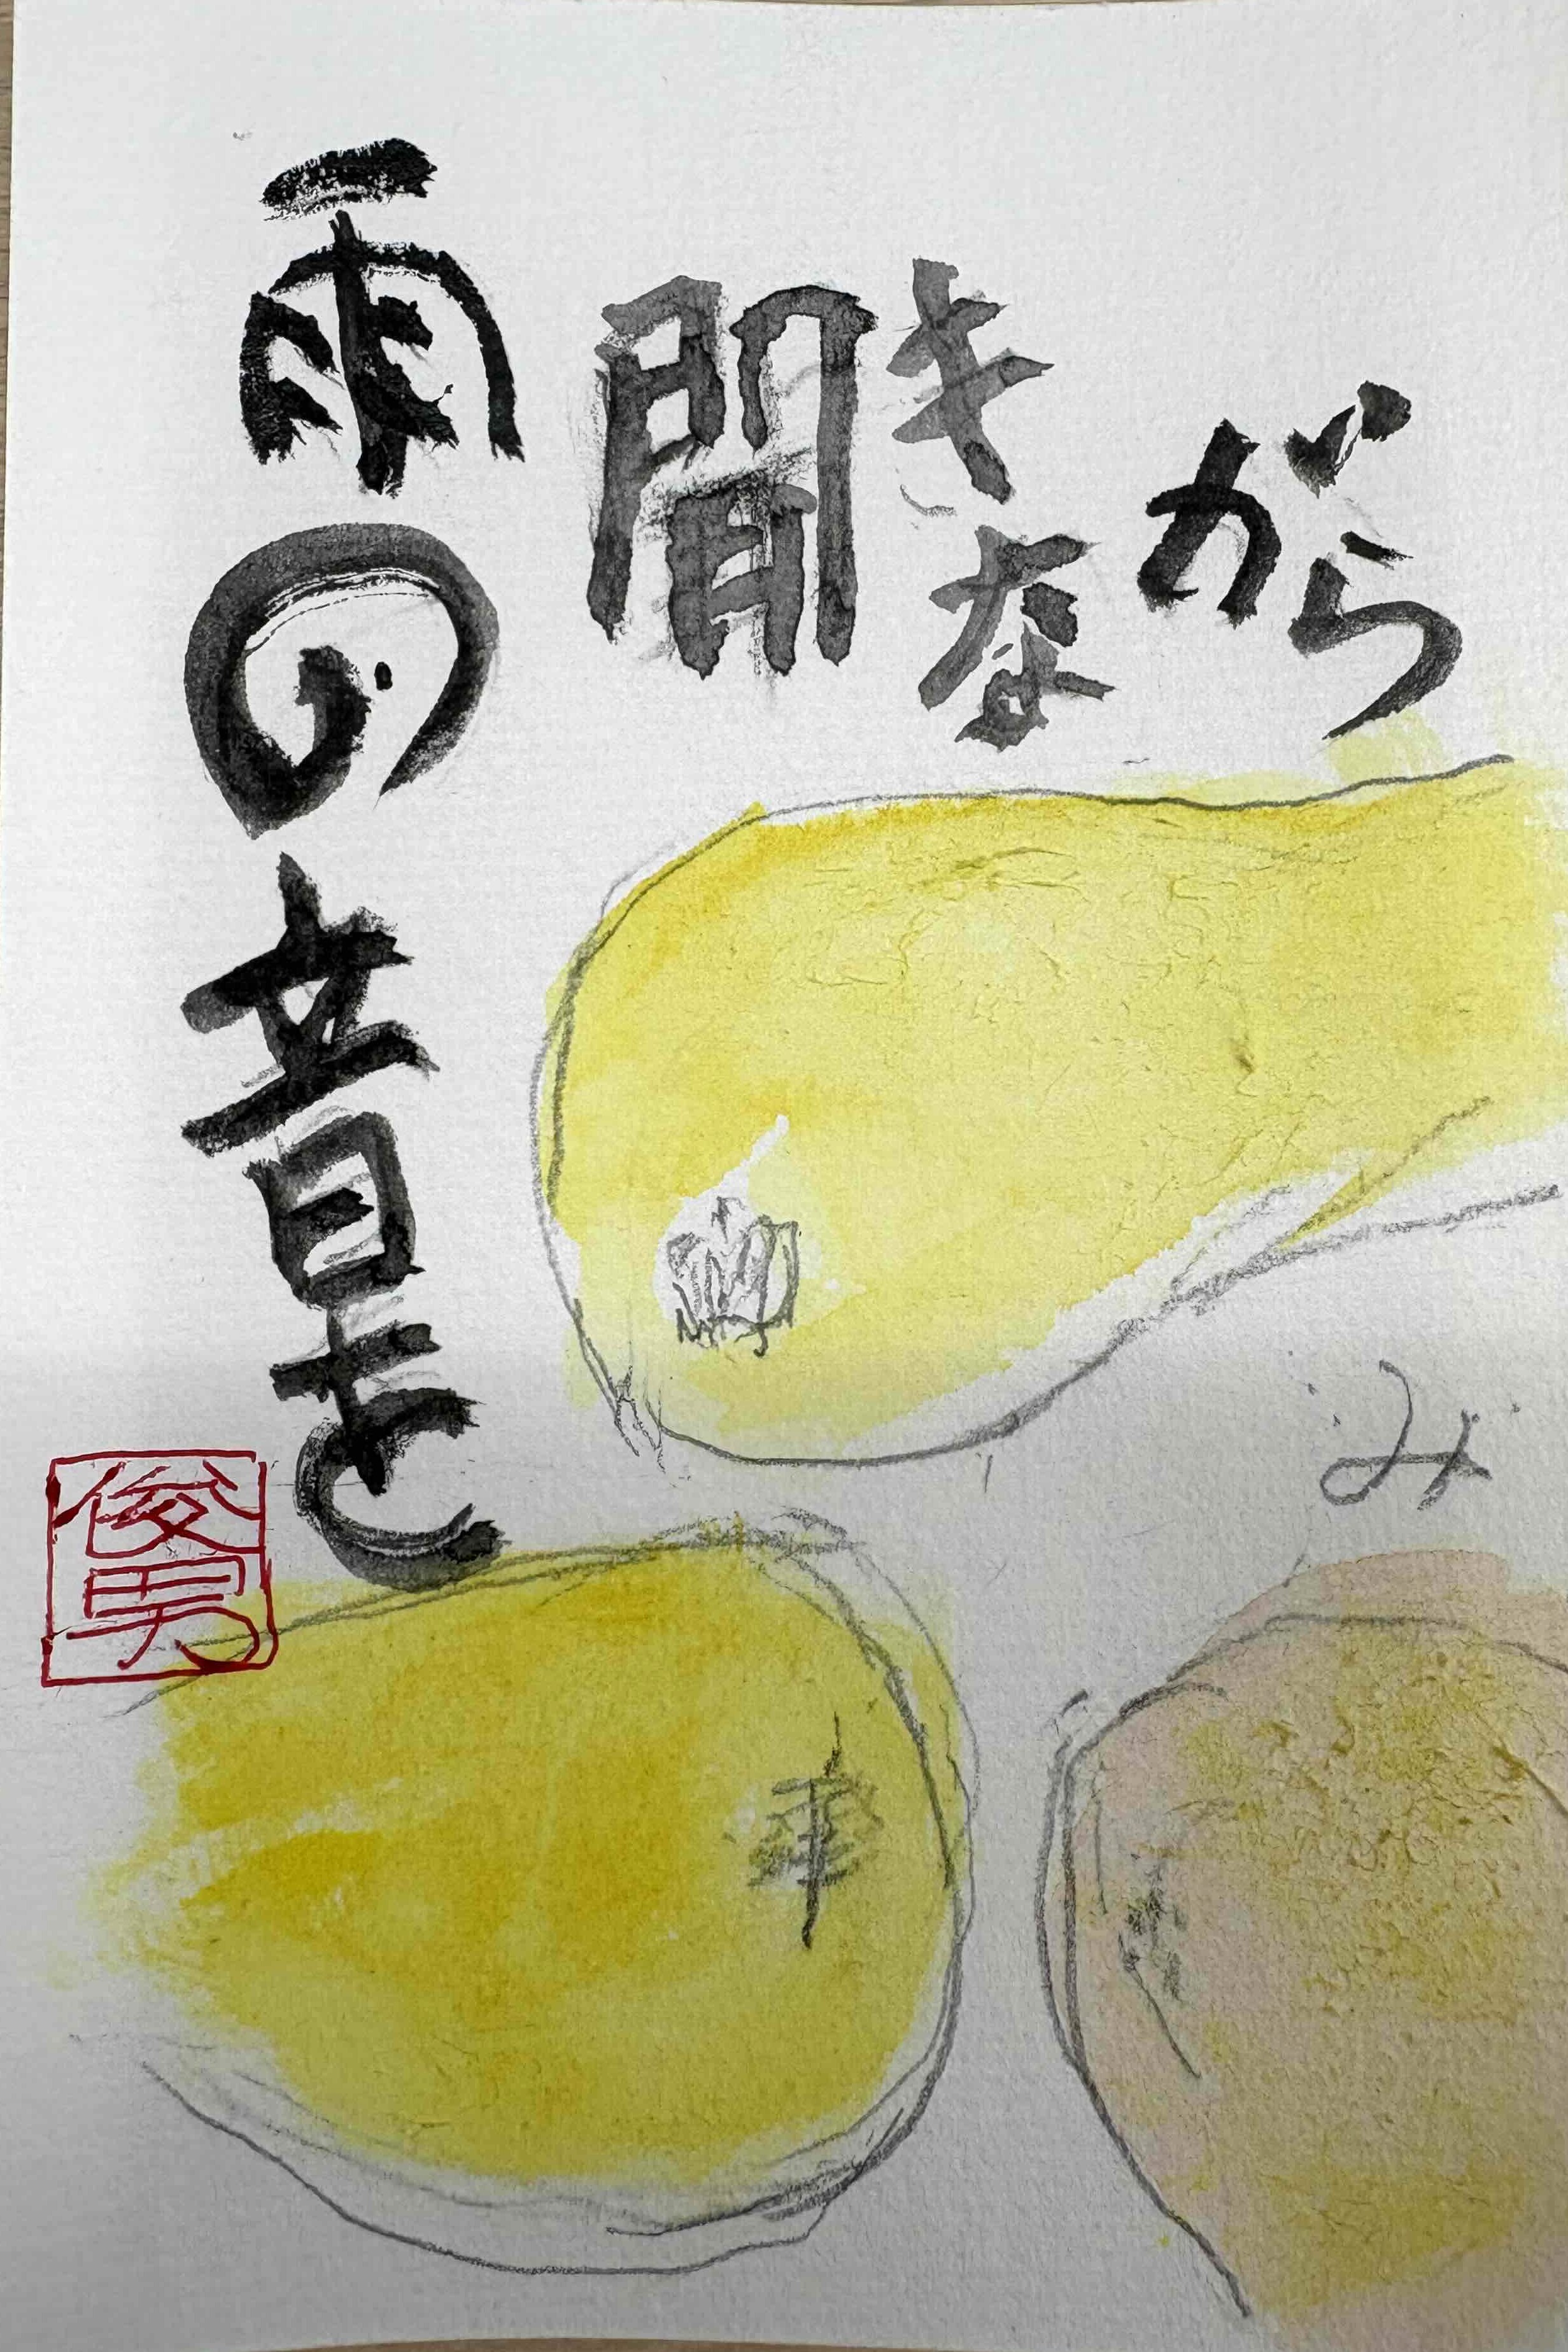 雨の音を
聞き
な
がら
み
俊男